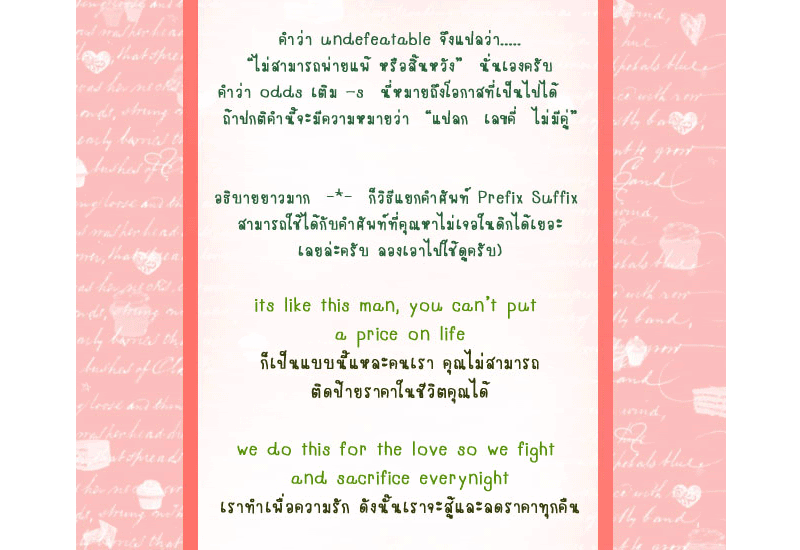 คำว่า undefeatable จึงแปลว่า.....
“ไม่สามารถพ่ายแพ้ หรือสิ้นหวัง” นั่นเองครับ
คำว่า odds เติม -s นี่หมายถึงโอกาสที่เป็นไปได้
ถ้าปกติคำนี้จะมีความหมายว่า “แปลก เลขคี่ ไม่มีคู่”
อธิบายยาวมาก -*- ก็วิธีแยกคำศัพท์ Prefix Suffix
สามารถใช้ได้กับคำศัพท์ที่คุณหาไม่เจอในดิกได้เยอะ
เลยล่ะครับ ลองเอาไปใช้ดูครับ)
its like this man, you can't put
a price on life
ก็เป็นแบบนี้แหละคนเรา คุณไม่สามารถ
ติดป้ายราคาในชีวิตคุณได้
we do this for the love so we fight
and sacrifice everynight
เราทำเพื่อความรัก ดังนั้นเราจะสู้และลดราคาทุกคืน